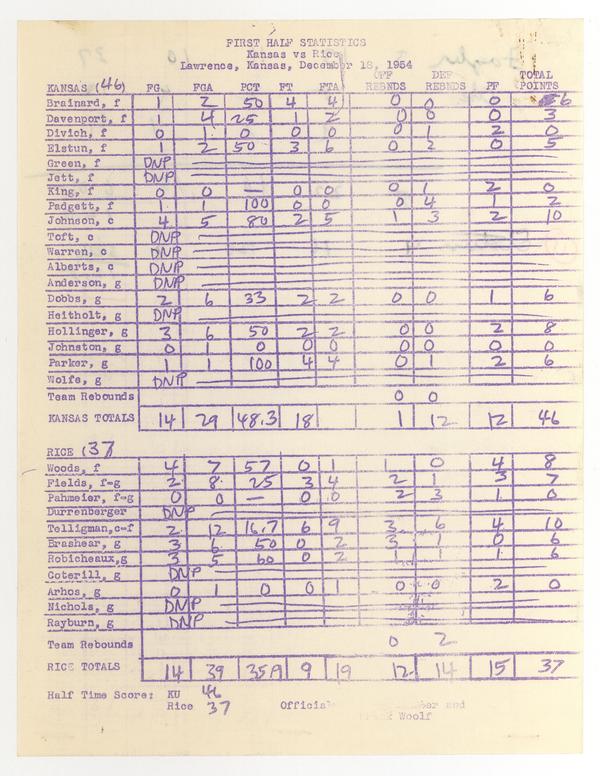 FIRST HALF STATISTICS
Kansas vs Rice
Lawrence, Kansas, December 18, 1954
KANSAS (46) FG. FGA PCT FT FTA OFF REBNDS DEF REBNDS PF TOTAL POINTS
Brainard, f 1 2 50 4 4 0 0 0 6
Davenport, f 1 4 25 1 2 0 0 0 3
Divich, f 0 1 0 0 0 0 1 2 0
Elstun, f 1 2 50 3 6 0 2 0 5
Green, f DNP
Jett, f DNP
King, f 0 0 — 0 0 0 1 2 0
Padgett, f 1 1 100 0 0 0 4 1 2
Johnson, c 4 5 80 2 5 1 3 2 10
Toft, c DNP
Warren, c DNP
Alberts, c DNP
Anderson, g DNP
Dobbs, g 2 6 33 2 2 0 0 1 6
Heitholt, g DNP
Hollinger, g 3 6 50 2 2 0 0 2 8
Johnston, g 0 1 0 0 0 0 0 0 0
Parker, g 1 1 100 4 4 0 1 2 6
Wolfe, g DNP
Team Rebounds 0 0
KANSAS TOTALS 14 29 48.3 18 1 12 12 46
RICE (37)
Woods, f 4 7 57 0 1 1 0 4 8
Fields, f-g 2 8 25 3 4 2 1 3 7
Pahmeier, f-g 0 0 — 0 0 2 3 1 0
Durrenberger DNP
Telligman,c-f 2 12 16.7 6 9 3 6 4 10
Brashear, g 3 6 50 0 2 3 1 0 6
Robicheaux,g 3 5 60 0 2 1 1 1 6
Coterill, g DNP
Arhos, g 0 1 0 0 1 0 0 2 0
Nichols, g DNP
Rayburn, g DNP
Team Rebounds 0 2
RICE TOTALS 14 39 35.9 9 19 12 14 15 37
Half Time Score: KU 46
Rice 37 Official and
Woolf